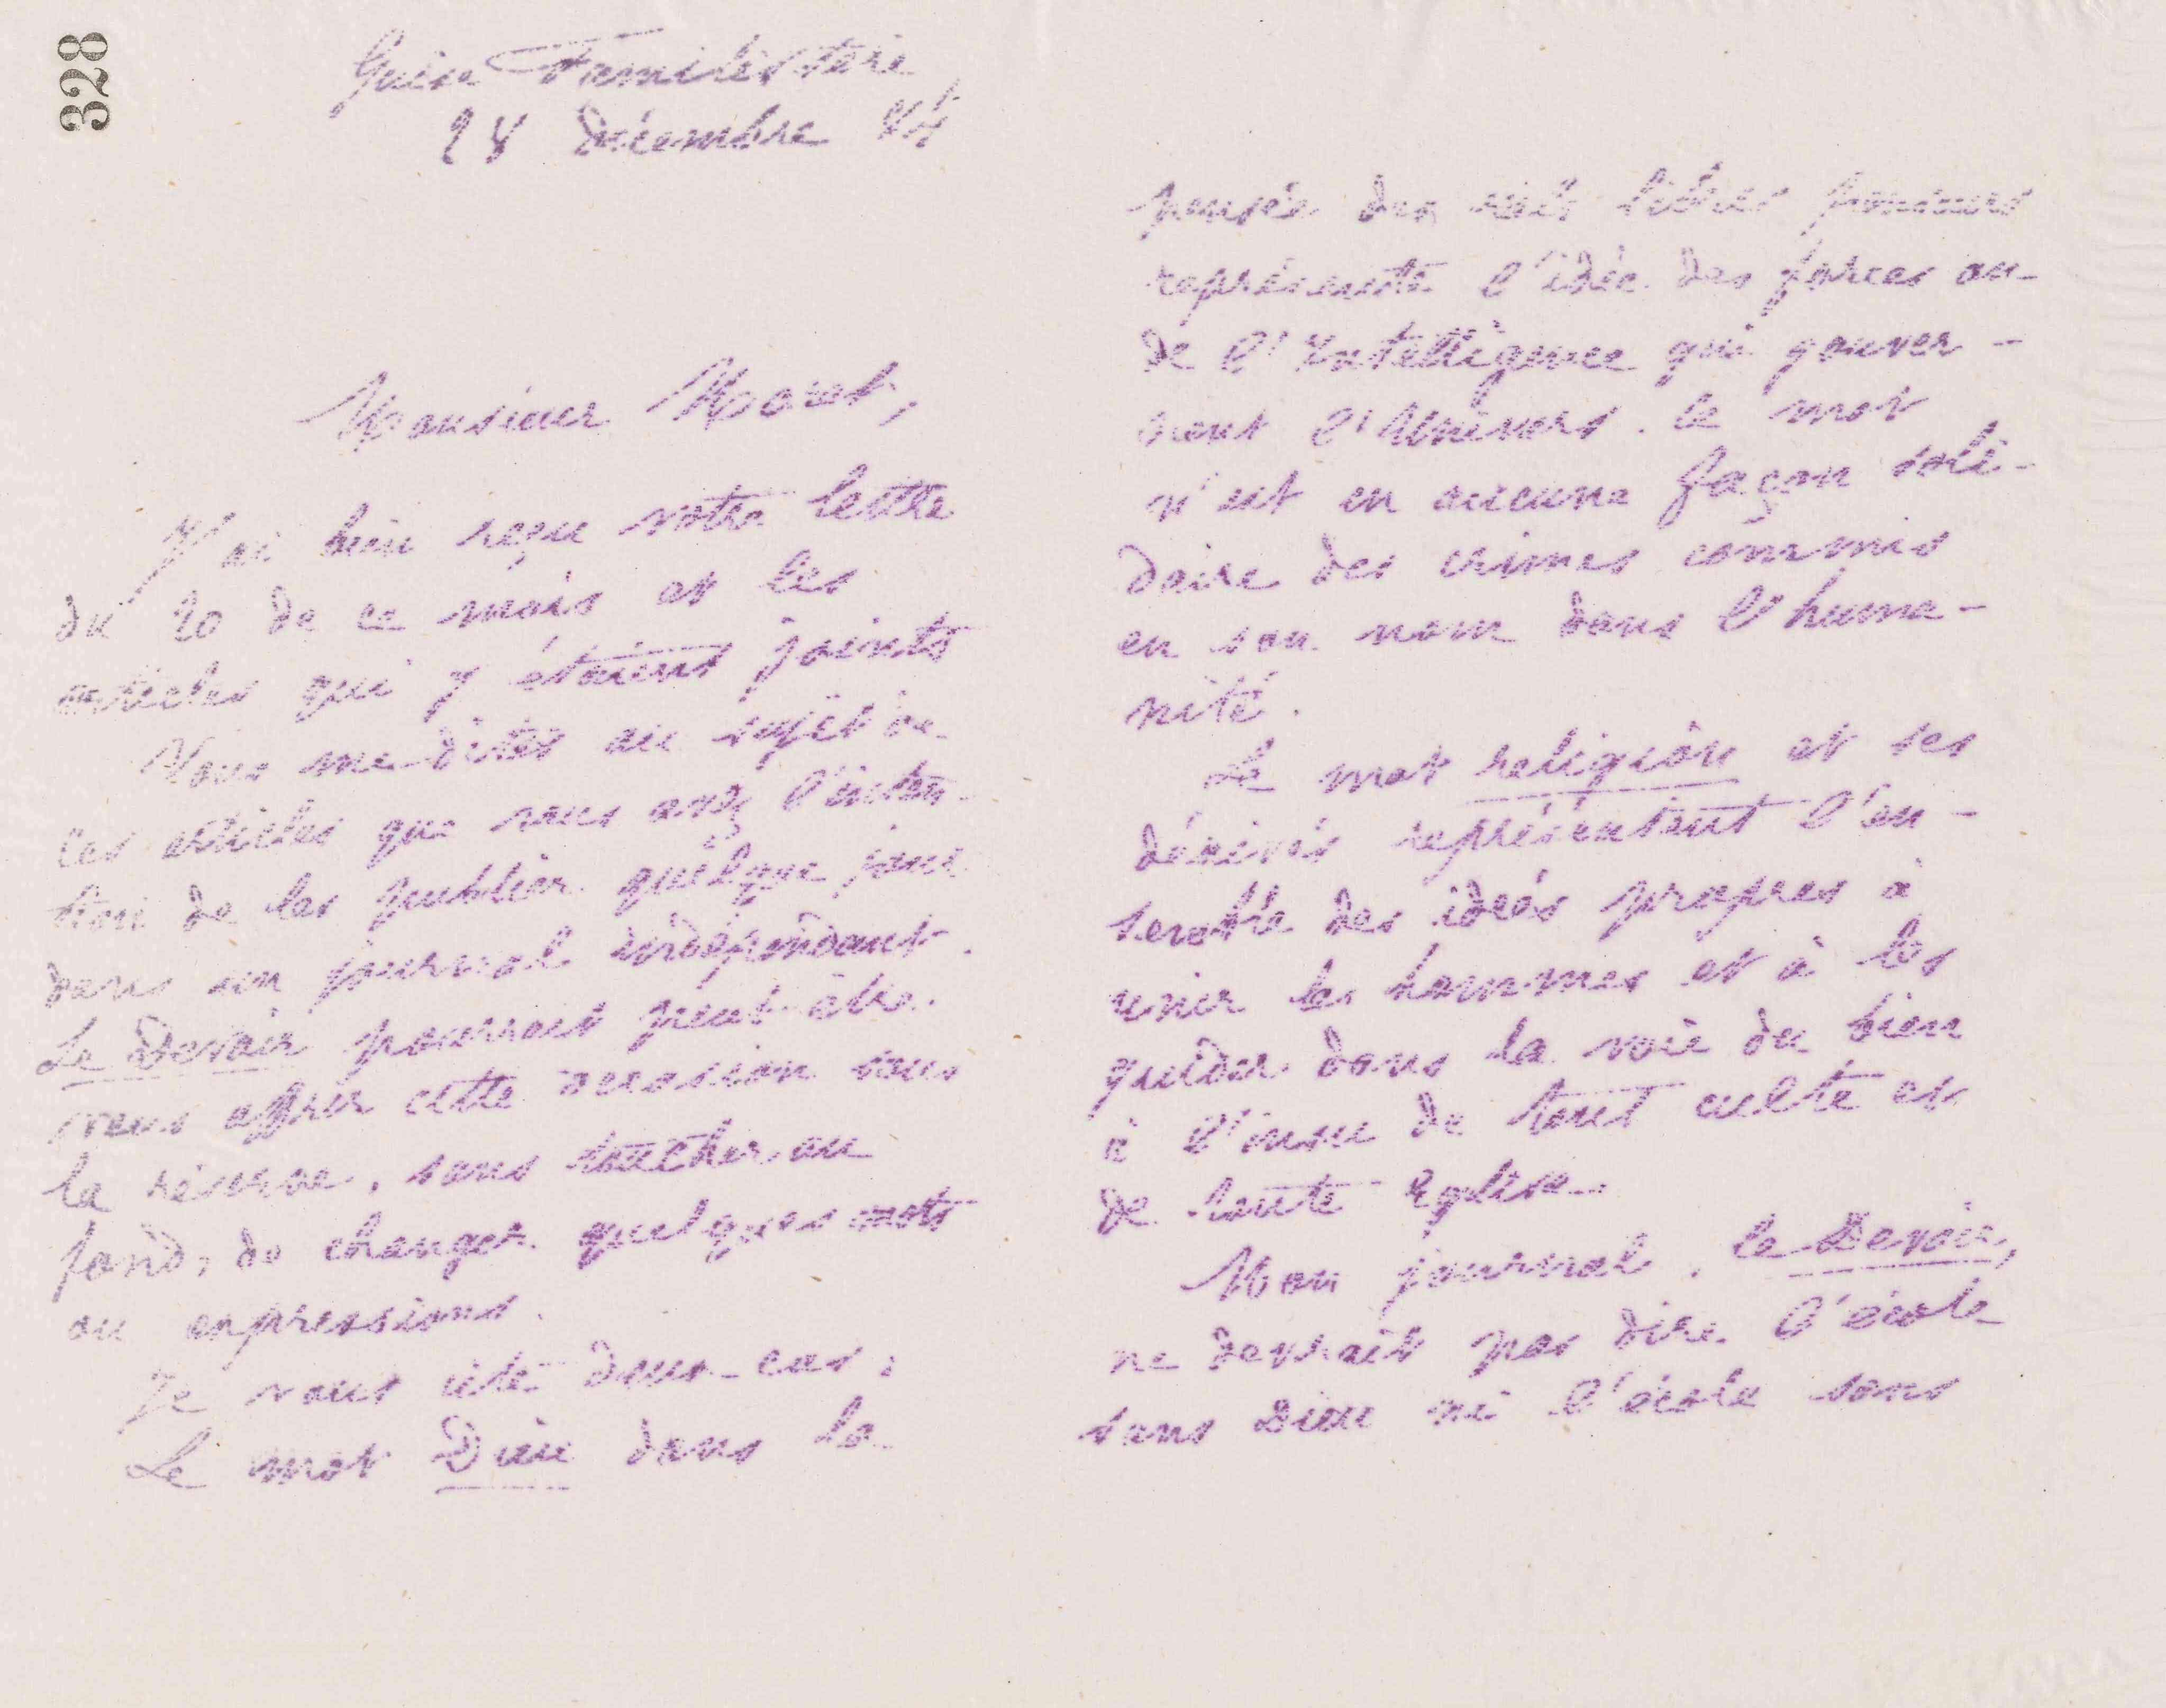 328
Guise Familistère
28 décembre 84
Monsieur Moret,
J'ai bien reçu votre lettre
du 20 de ce mois et les
articles qui y étaient joints
Vous me dites au sujet de
ces articles que vous avez l'inten-
tion de les publier quelque jour
dans un journal indépendant.
Le Devoir pourrait peut-être
vous offrir cette occasion sous
la réserve, sans toucher au
fond, de changer quelques mots
ou expressions.
Je vous cite deux cas :
Le mot Dieu dans la
pensée des vrais libres penseurs
représente l'idée des forces ou
de l'Intelligence qui gouver-
nent l'Univers. Ce mot
n'est en aucune façon soli-
daire des crimes commis
en son nom dans l'huma-
nité.
Le mot religion et ses
dérivés représentent l'en-
semble des idées propres à
unir les hommes et à les
guider dans la voie du bien
à l'insu de tout culte et
de toute église.
Mon journal, le Devoir,
ne devrait pas dire l'école
sans Dieu ni l'école sans